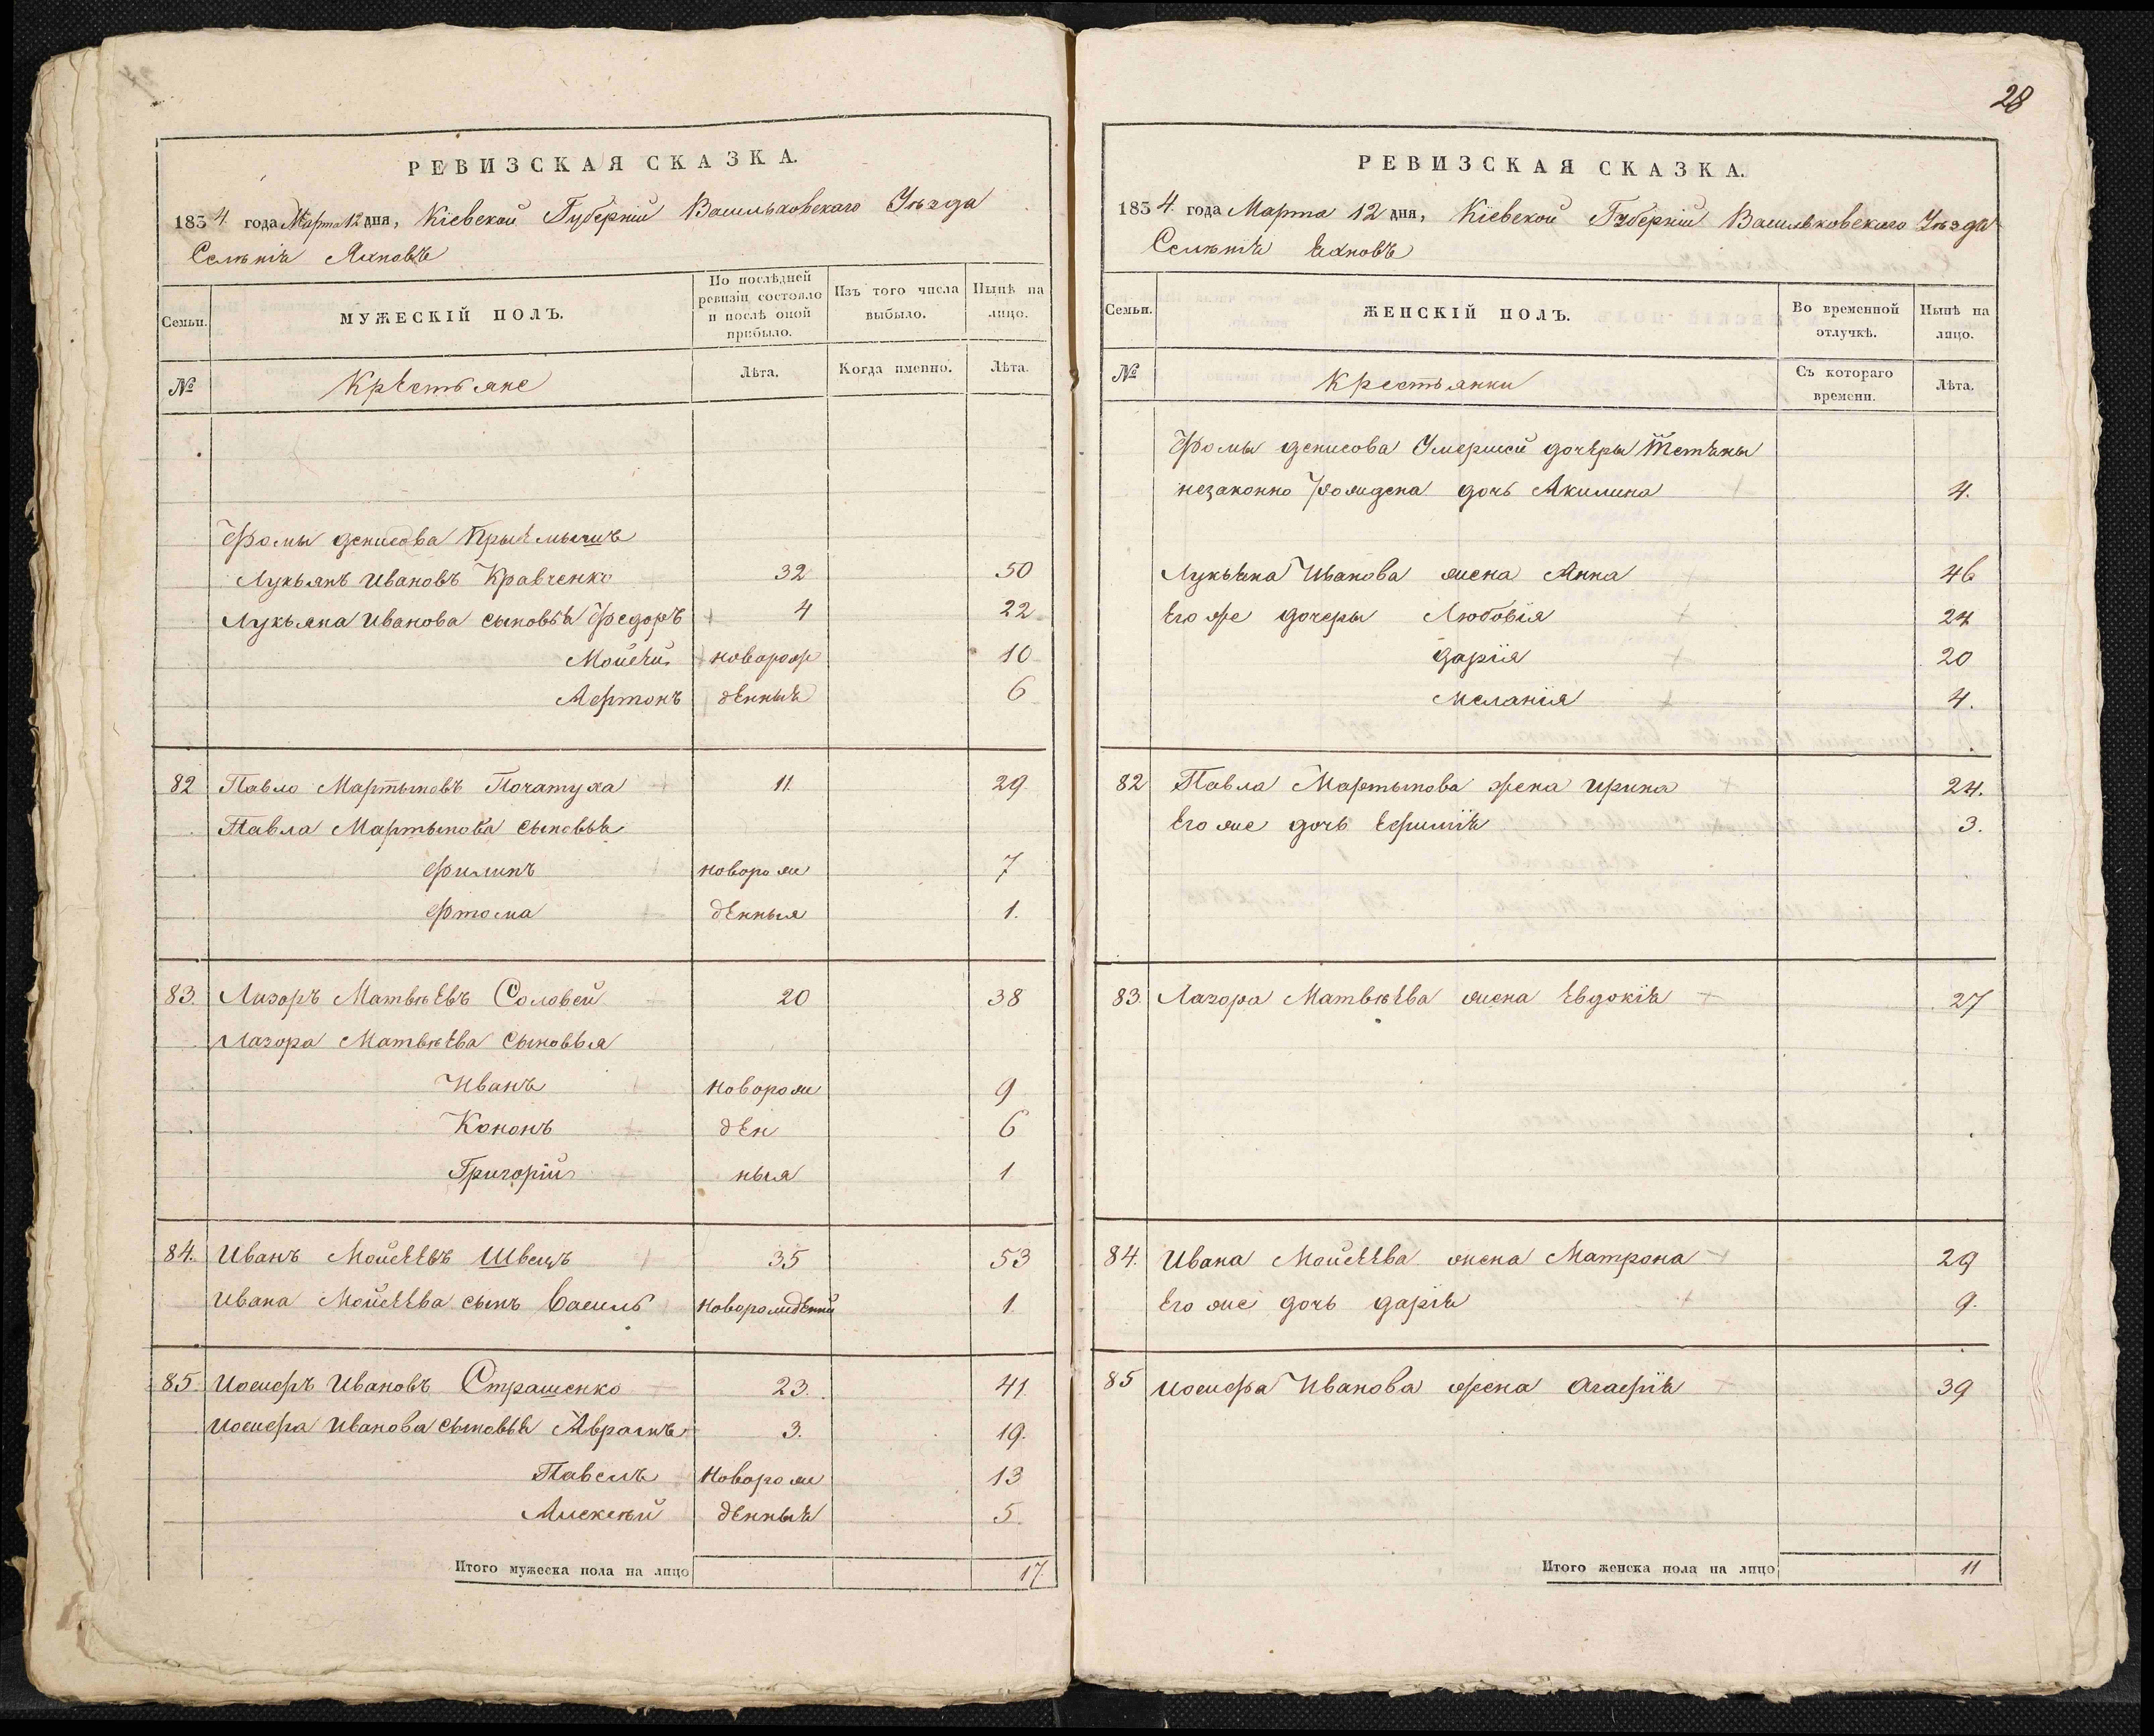 РЕВИЗСКАЯ СКАЗКА.
1834 года Марта 12 дня, Кіевской Губерніи Васильковскаго Уѣзда
Селѣнія Яхновъ
Семьи.
МУЖЕСКІЙ ПОЛЪ.
По послѣдней ревизіи состояло и послѣ оной прибыло.
Изъ того числа выбыло.
Нынѣ на лицо.
№
Крестьяне
Лѣта.
Когда именно.
Лѣта.
Фомы денисова Прыемышъ
Лукьянъ Ивановъ Кравченко 32 50
Лукьяна Иванова сыновья Федоръ 4 22
Мойсей новорож 10
денныя 6
82 Павло Мартыновъ Початуха 11. 29
Павла Мартынова сыновья
Филипъ новорож 7
Фтома денныя 1.
83. Лазоръ Матвѣевъ Соловей 20 38
Лазора Матвѣева Сыновья
Иванъ новорож 9
Кононъ ден 6
Григорій ныя 1
84. Иванъ Мойсеевъ Швецъ 35 53
Ивана Мойсеева сынъ Василь новорожденный 1.
85. Иосифъ Ивановъ Страшенко 23. 41.
Иосифа Иванова сыновья Аврамъ 3. 19.
Павелъ Новорож 13
Алексѣй денныя 5.
Итого мужеска пола на лицо 17.
28
РЕВИЗСКАЯ СКАЗКА.
1834 года Марта 12 дня, Кіевской Губерніи Васильковскаго Уѣзда
Селѣнія Яхновъ
Семьи.
ЖЕНСКІЙ ПОЛЪ.
Во временной отлучкѣ.
Нынѣ на лицо.
№
Крестьянки
Съ котораго времени.
Лѣта.
Фомы денисова Умершей дочеры Тетяны
незаконно рождена дочь Акилина 4.
Лукьяна Иванова жена Анна 46
Его же дочеры Любовія 24
дарія 20
Меланія 4.
82 Павла Мартынова жена Ирина 24.
Его же дочь Ефимія 3.
83. Лазора Матвѣева жена Евдокія 27
84. Ивана Мойсеева жена Матрона 29
Его же дочь дарія 9.
85 Иосифа Иванова жена Агафія 39
Итого женска пола на лицо 11